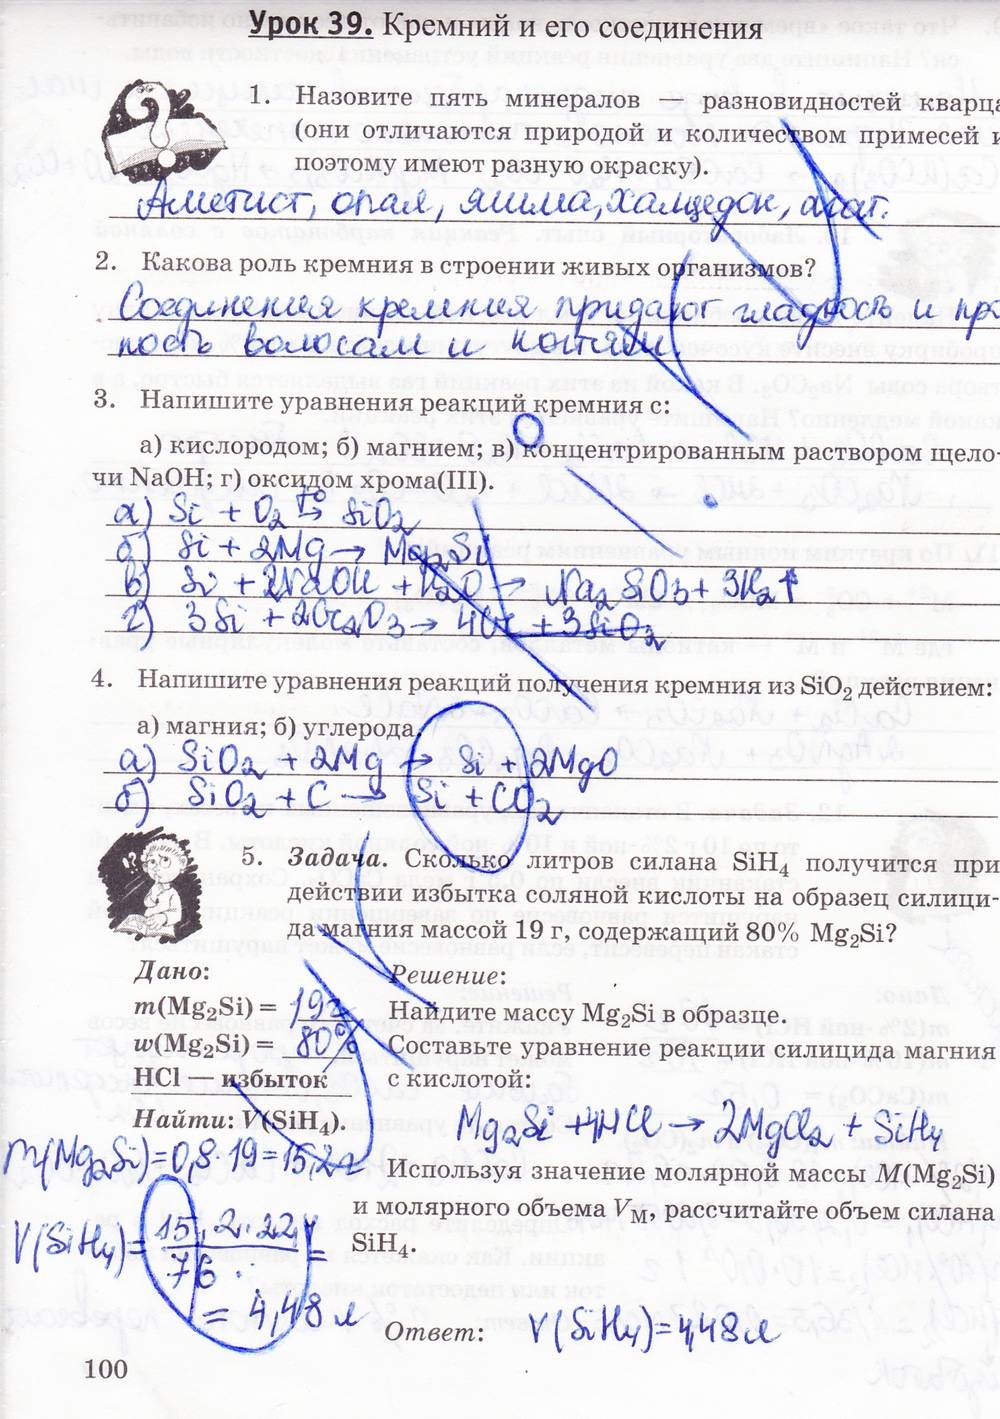 Урок 39. Кремний и его соединения
1. Назовите пять минералов — разновидностей кварца
(они отличаются природой и количеством примесей и
поэтому имеют разную окраску).
Аметист, опал, яшма, халцедон, агат.
2. Какова роль кремния в строении живых организмов?
Соединения кремния придают гладкость и про
ность волосам и ногтям
3. Напишите уравнения реакций кремния с:
а) кислородом; б) магнием; в) концентрированным раствором щело-
чи NaOH; г) оксидом хрома(III).
а) Si + O₂ t° → SiO₂
б) Si + 2Mg → Mg₂Si
в) Si + 2NaOH + H₂O → Na₂SiO₃ + 3H₂↑
г) 3Si + 2Cr₂O₃ → 4Cr + 3SiO₂
4. Напишите уравнения реакций получения кремния из SiO₂ действием:
а) магния; б) углерода.
а) SiO₂ + 2Mg → Si + 2MgO
б) SiO₂ + C → Si + CO₂
5. Задача. Сколько литров силана SiH₄ получится при
действии избытка соляной кислоты на образец силици-
да магния массой 19 г, содержащий 80% Mg₂Si?
Дано:
m(Mg₂Si) = 19г
w(Mg₂Si) = 80%
HCl — избыток
Найти: V(SiH₄).
m(Mg₂Si)=0,8·19=15,2г
V(SiH₄)= 15,2·22,4 / 76 =
= 4,48 л
Решение:
Найдите массу Mg₂Si в образце.
Составьте уравнение реакции силицида магния
с кислотой:
Mg₂Si + 4HCl → 2MgCl₂ + SiH₄
Используя значение молярной массы M(Mg₂Si)
и молярного объема Vм, рассчитайте объем силана
SiH₄.
Ответ: V(SiH₄)=4,48л
100